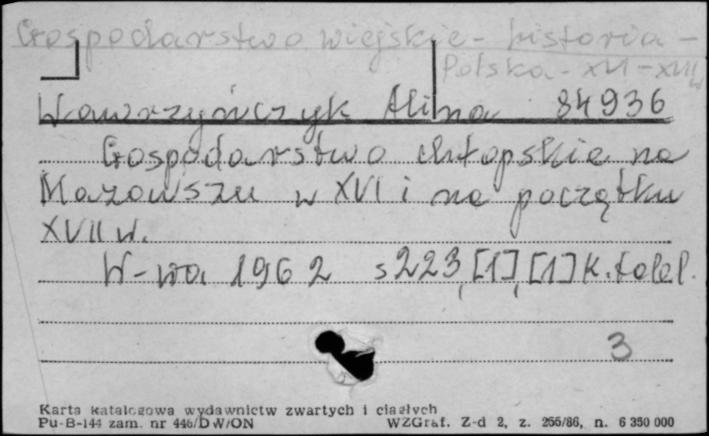 Gospodarstwo wiejskie - historia -
Polska - XVI - XVII w
Wawrzyńczyk Alina 84936
Gospodarstwo chłopskie na
Mazowszu w XVI i na początku
XVII w.
W-wa 1962 s 223, [1], [1] k. tabl.
3
Karta katalogowa wydawnictw zwartych i ciągłych
Pu-B-144 zam. nr 446/DW/ON WZGraf. Z-d 2, z. 266/86, n. 6 350 000